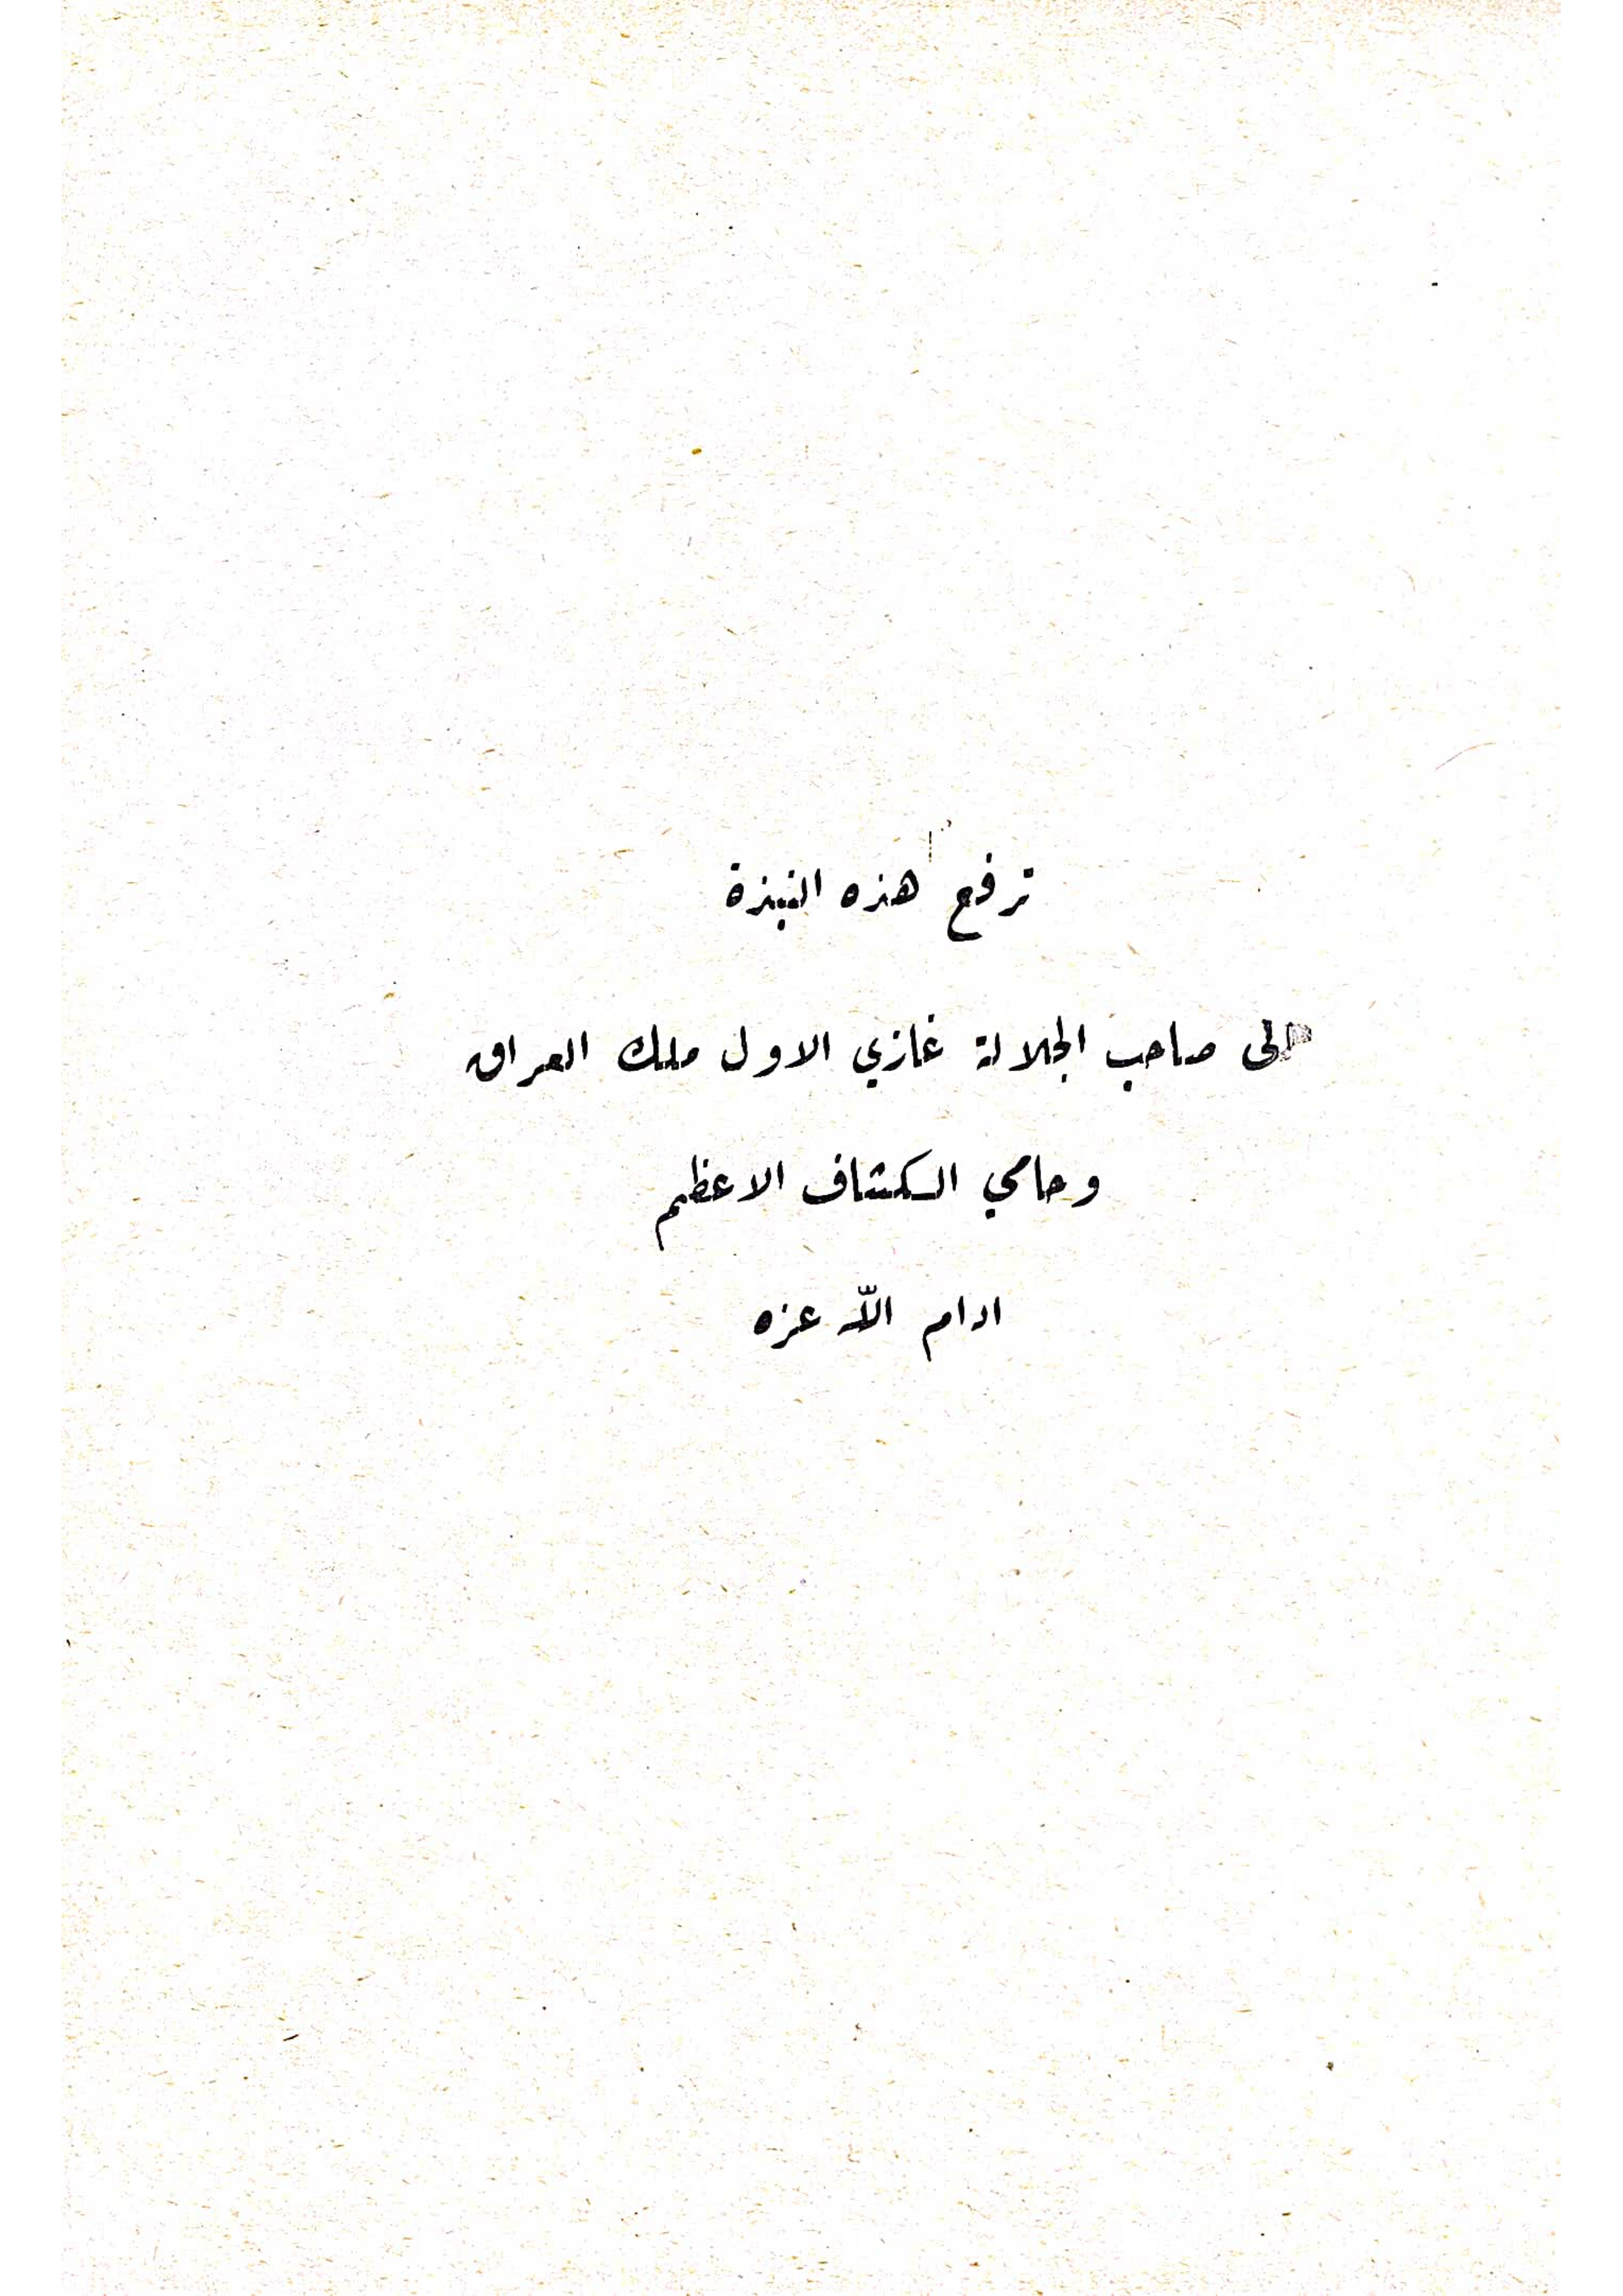 ترفع هذه النبذة
الى صاحب الجلالة غازي الاول ملك العراق
وحامي الكشاف الاعظم
ادام الله عزه